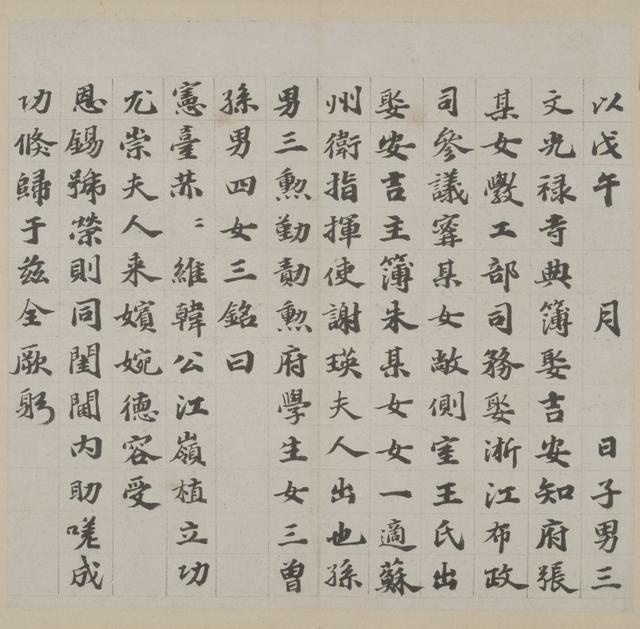 以戊午 月 日子男三
文光禄寺典簿娶吉安知府張
某女斆工部司務娶淅江布政
司參議甯某女敞側室王氏出
娶安吉主簿朱某女女一適蘇
州衛指揮使謝瑛夫人出也孫
男三勲勤勣勲府學生女三曾
孫男四女三銘曰
憲臺恭〻維韓公江嶺植立功
尤崇夫人来嬪婉德容受
恩錫號榮則同閨閫内助嗟成
功倐歸于兹全厥躬